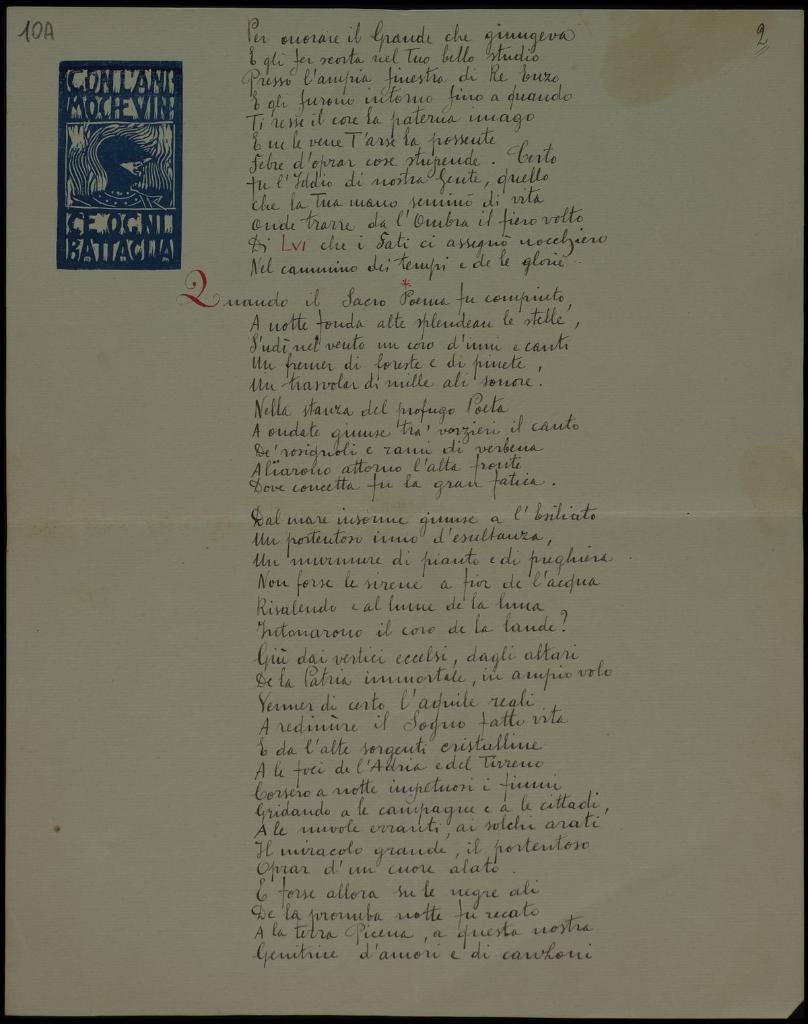 10A
2
CON L'ANI
MO CHE VIN
CE OGNI
BATTAGLIA
Per onorare il Grande che giungeva
E gli fer scorta nel Tuo bello studio
Presso l'ampia finestra di Re Enzo
E gli furono intorno fino a quando
Ti resse il core la paterna imago
E ne le vene T'arse la possente
Febre d'oprar cose stupende. Certo
fu l'Iddio di nostra Gente, quello
che la Tua mano seminò di vita
Onde trarre da l'Ombra il fiero volto
Di LVI che i Fati ci assegnò nocchiero
Nel cammino dei tempi e de le glorie.
Quando il Sacro Poema * fu compiuto,
A notte fonda alte splendean le stelle,
S'udì nel vento un coro d'inni e canti
Un fremer di foreste e di pinete,
Un trasvolar di mille ali sonore.
Nella stanza del profugo Poeta
A ondate giunse tra' verzieri il canto
De' rosignoli e rami di verbena
Aliarono attorno l'alta fronte
Dove concetta fu la gran fatica.
Dal mare insonne giunse a l'Esiliato
Un portentoso inno d'esultanza,
Un murmure di pianto e di preghiera.
Non forse le sirene a fior de l'acqua
Risalendo e al lume de la luna
Intonarono il coro de la laude?
Giù dai vertici eccelsi, dagli altari
De la Patria immortale, in ampio volo
Venner di certo l'aquile reali
A redimire il Sogno fatto vita
E da l'alte sorgenti cristalline
A le foci de l'Adria e del Tirreno
Corsero a notte impetuosi i fiumi
Gridando a le campagne e a le cittadi,
A le nuvole erranti, ai solchi arati
Il miracolo grande, il portentoso
Oprar d'un cuore alato.
E forse allora su le negre ali
De la pronuba notte fu recato
A la terra Picena, a questa nostra
Genitrice d'amori e di canzoni